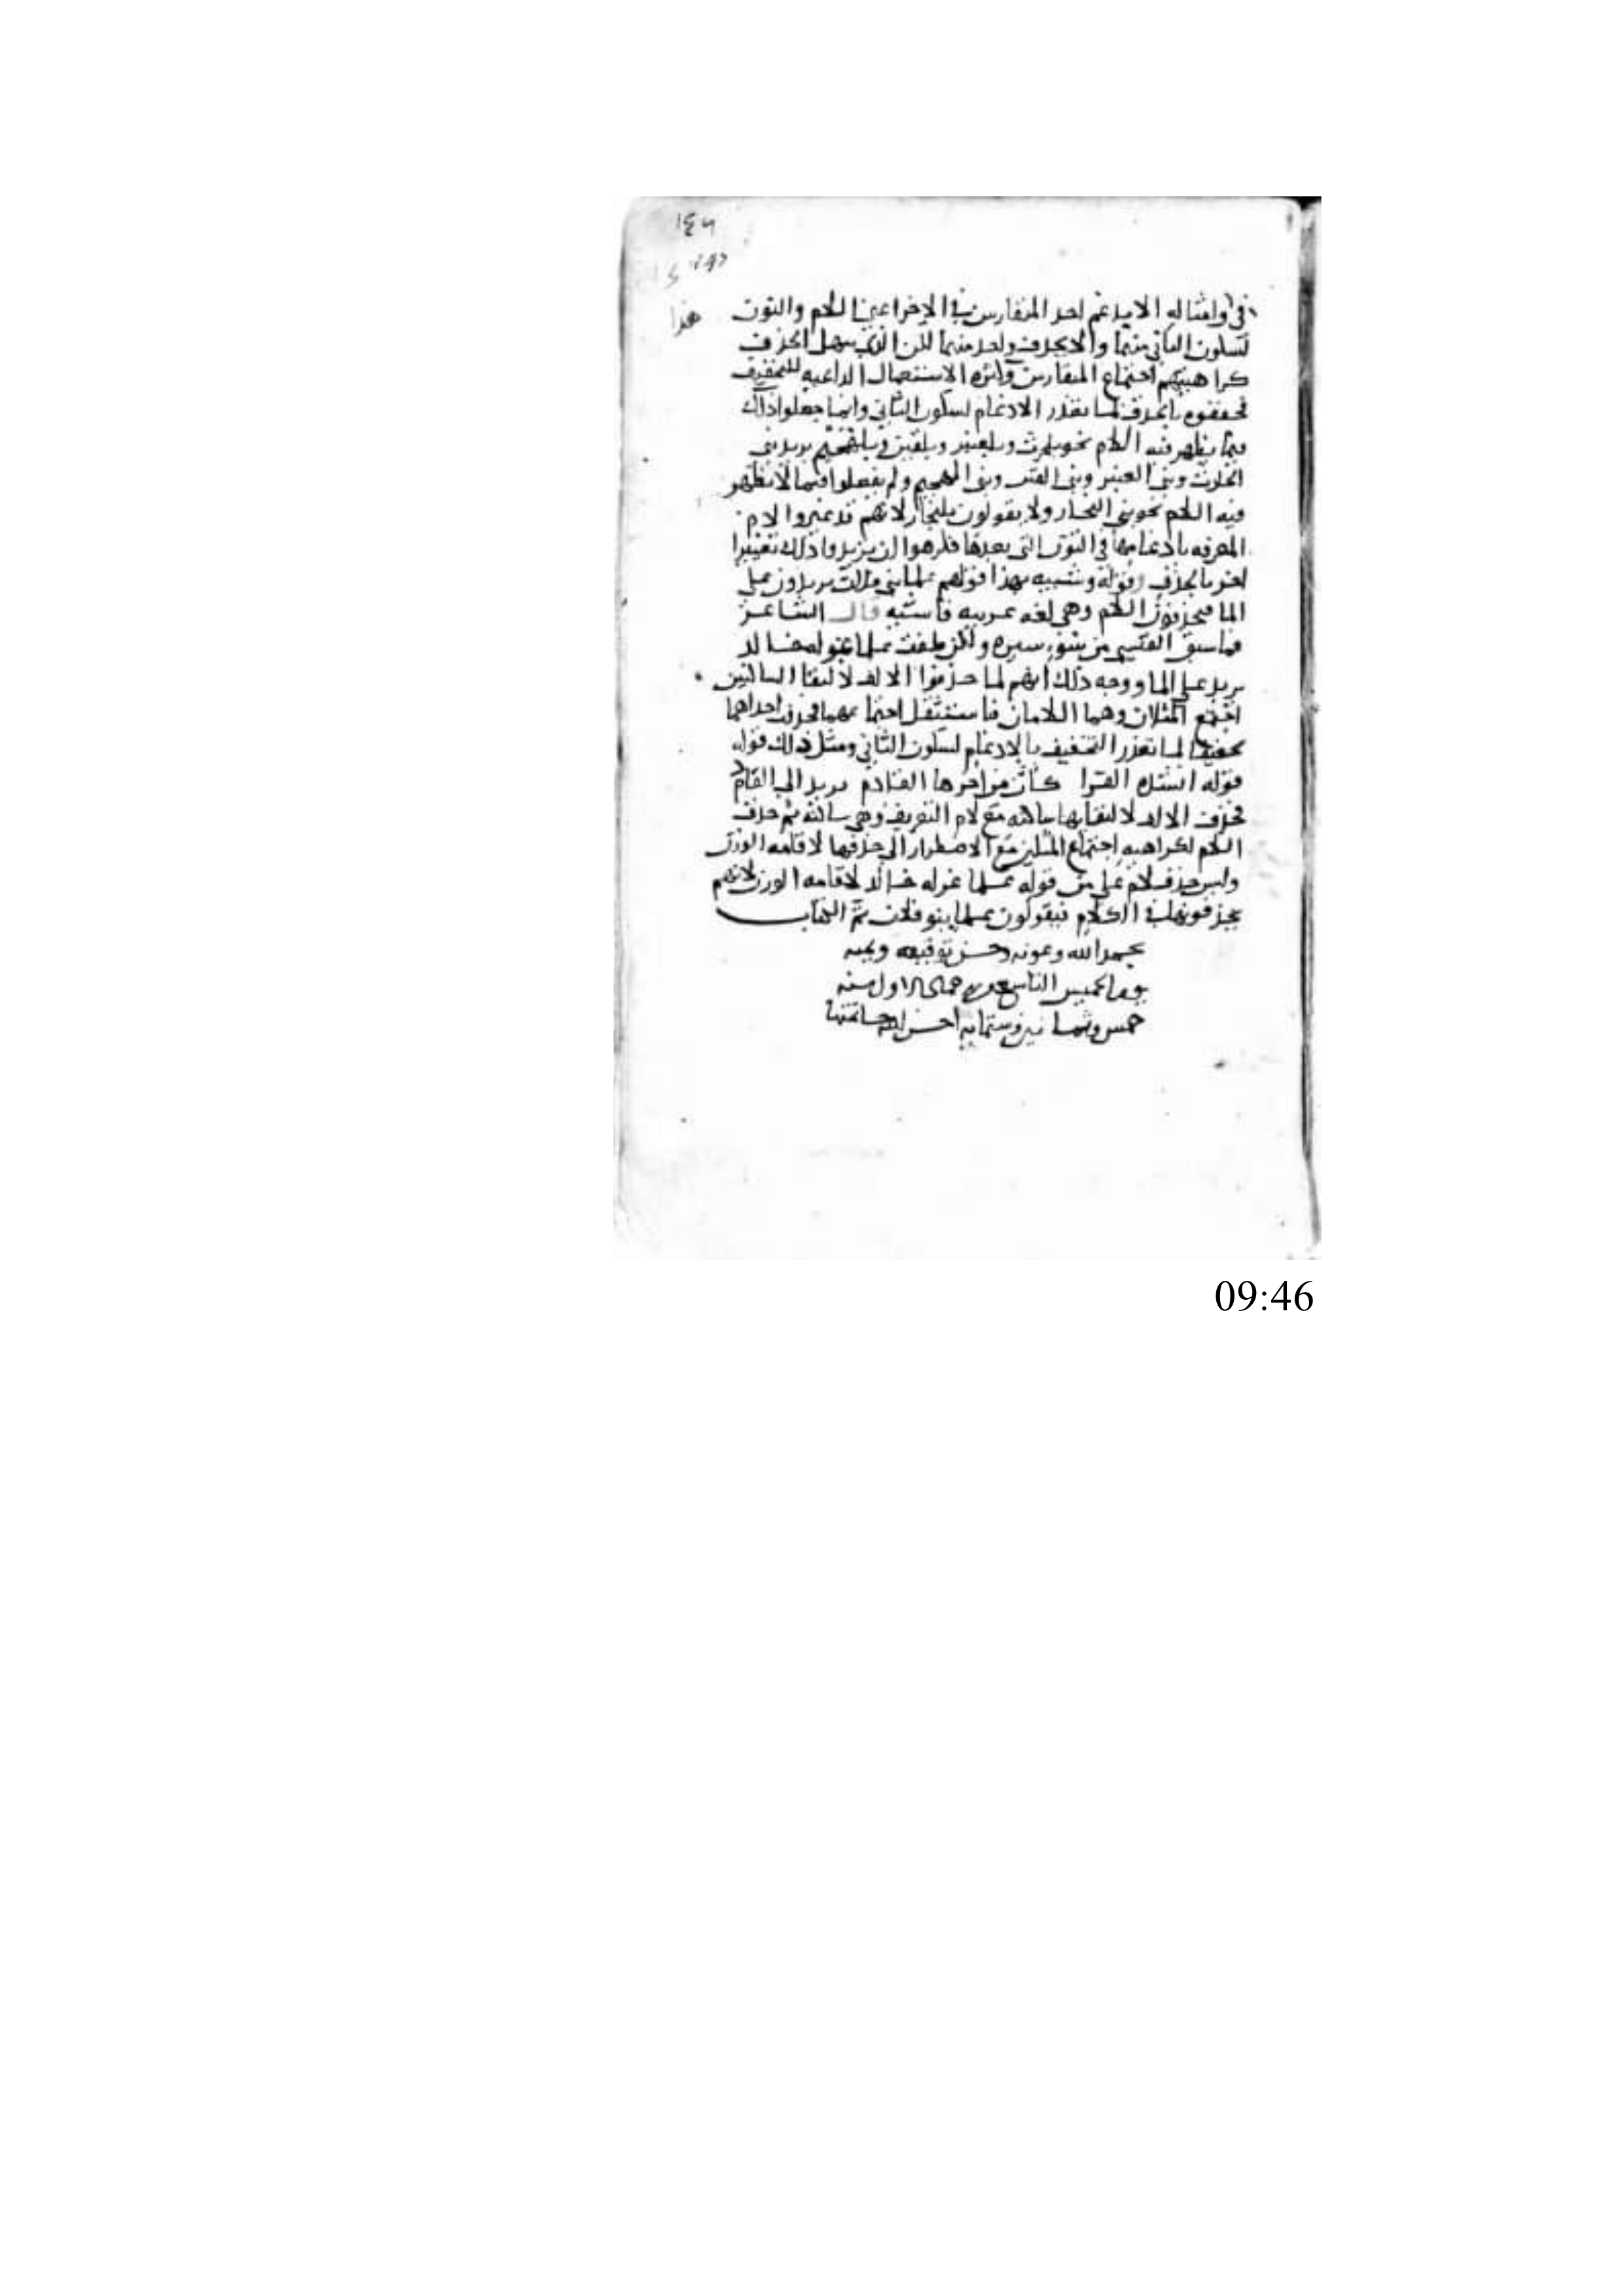 ١٤٦
هذا
في وامثاله الا يدغم احد المتقاربين في الاخر اعني اللام والنون
لسكون الثاني منهما والا يحذف واحد منهما لكن الذي سهل الحذف
كراهيتهم اجتماع المتقاربين وكثره الاستعمال الداعيه للتخفيف
فخففوه بالحذف لما تعذر الادغام لسكون الثاني وانما جعلوا ذلك
فيما يظهر فيه اللام نحو بلحرث وبلعنبر وبلقين وبلهجيم يريد بني
الحارث وبني العنبر وبني القين وبني الهجيم ولم يفعلوا فيما لا يظهر
فيه اللام نحو بني النجار ولا يقولون بلنجار لانهم قد غيروا لام
المعرفه بادغامها في النون التي بعدها فكرهوا ان يزيدوا ذلك تغييرا
اخر بالحذف قوله وشبيه بهذا قولهم علما بني فلان يريدون على
الما فيحذفون اللام وهي لغه عربيه فاشيه قال الشاعر
فما سبق القيسي من سوء سيره ولكن طفت علما غرله خالد
يريد على الما ووجه ذلك انهم لما حذفوا الالف لالتقا الساكنين
اجتمع المثلان وهما اللامان فاستثقل اجتماعهما فحذفت احداهما
تخفيفا لما تعذر التخفيف بالادغام لسكون الثاني ومثل ذلك قوله
قوله انشده الفرا كان من اخرها القادم يريد الى القادم
فحذف الالف لالتقايها ساكنه مع لام التعريف وهي ساكنه ثم حذف
اللام لكراهيه اجتماع المثلين مع الاضطرار الى حذفها لاقامه الوزن
وليس حذف لام على من قوله علما غرله خالد لاقامه الوزن لانهم
يحذفونها في الكلام فيقولون علما بنو فلان تم الكتاب
بحمد الله وعونه وحسن توفيقه ويمنه
يوم الخميس التاسع من جمادى الاول سنه
خمس وثمانين وستمايه احسن الله خاتمتها
09:46